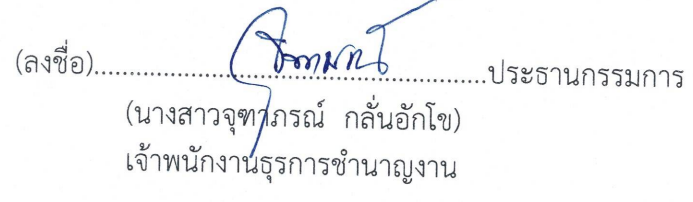 (ลงชื่อ)....................................................ประธานกรรมการ
(นางสาวจุฑาภรณ์ กลั่นอักโข)
เจ้าพนักงานธุรการชำนาญงาน